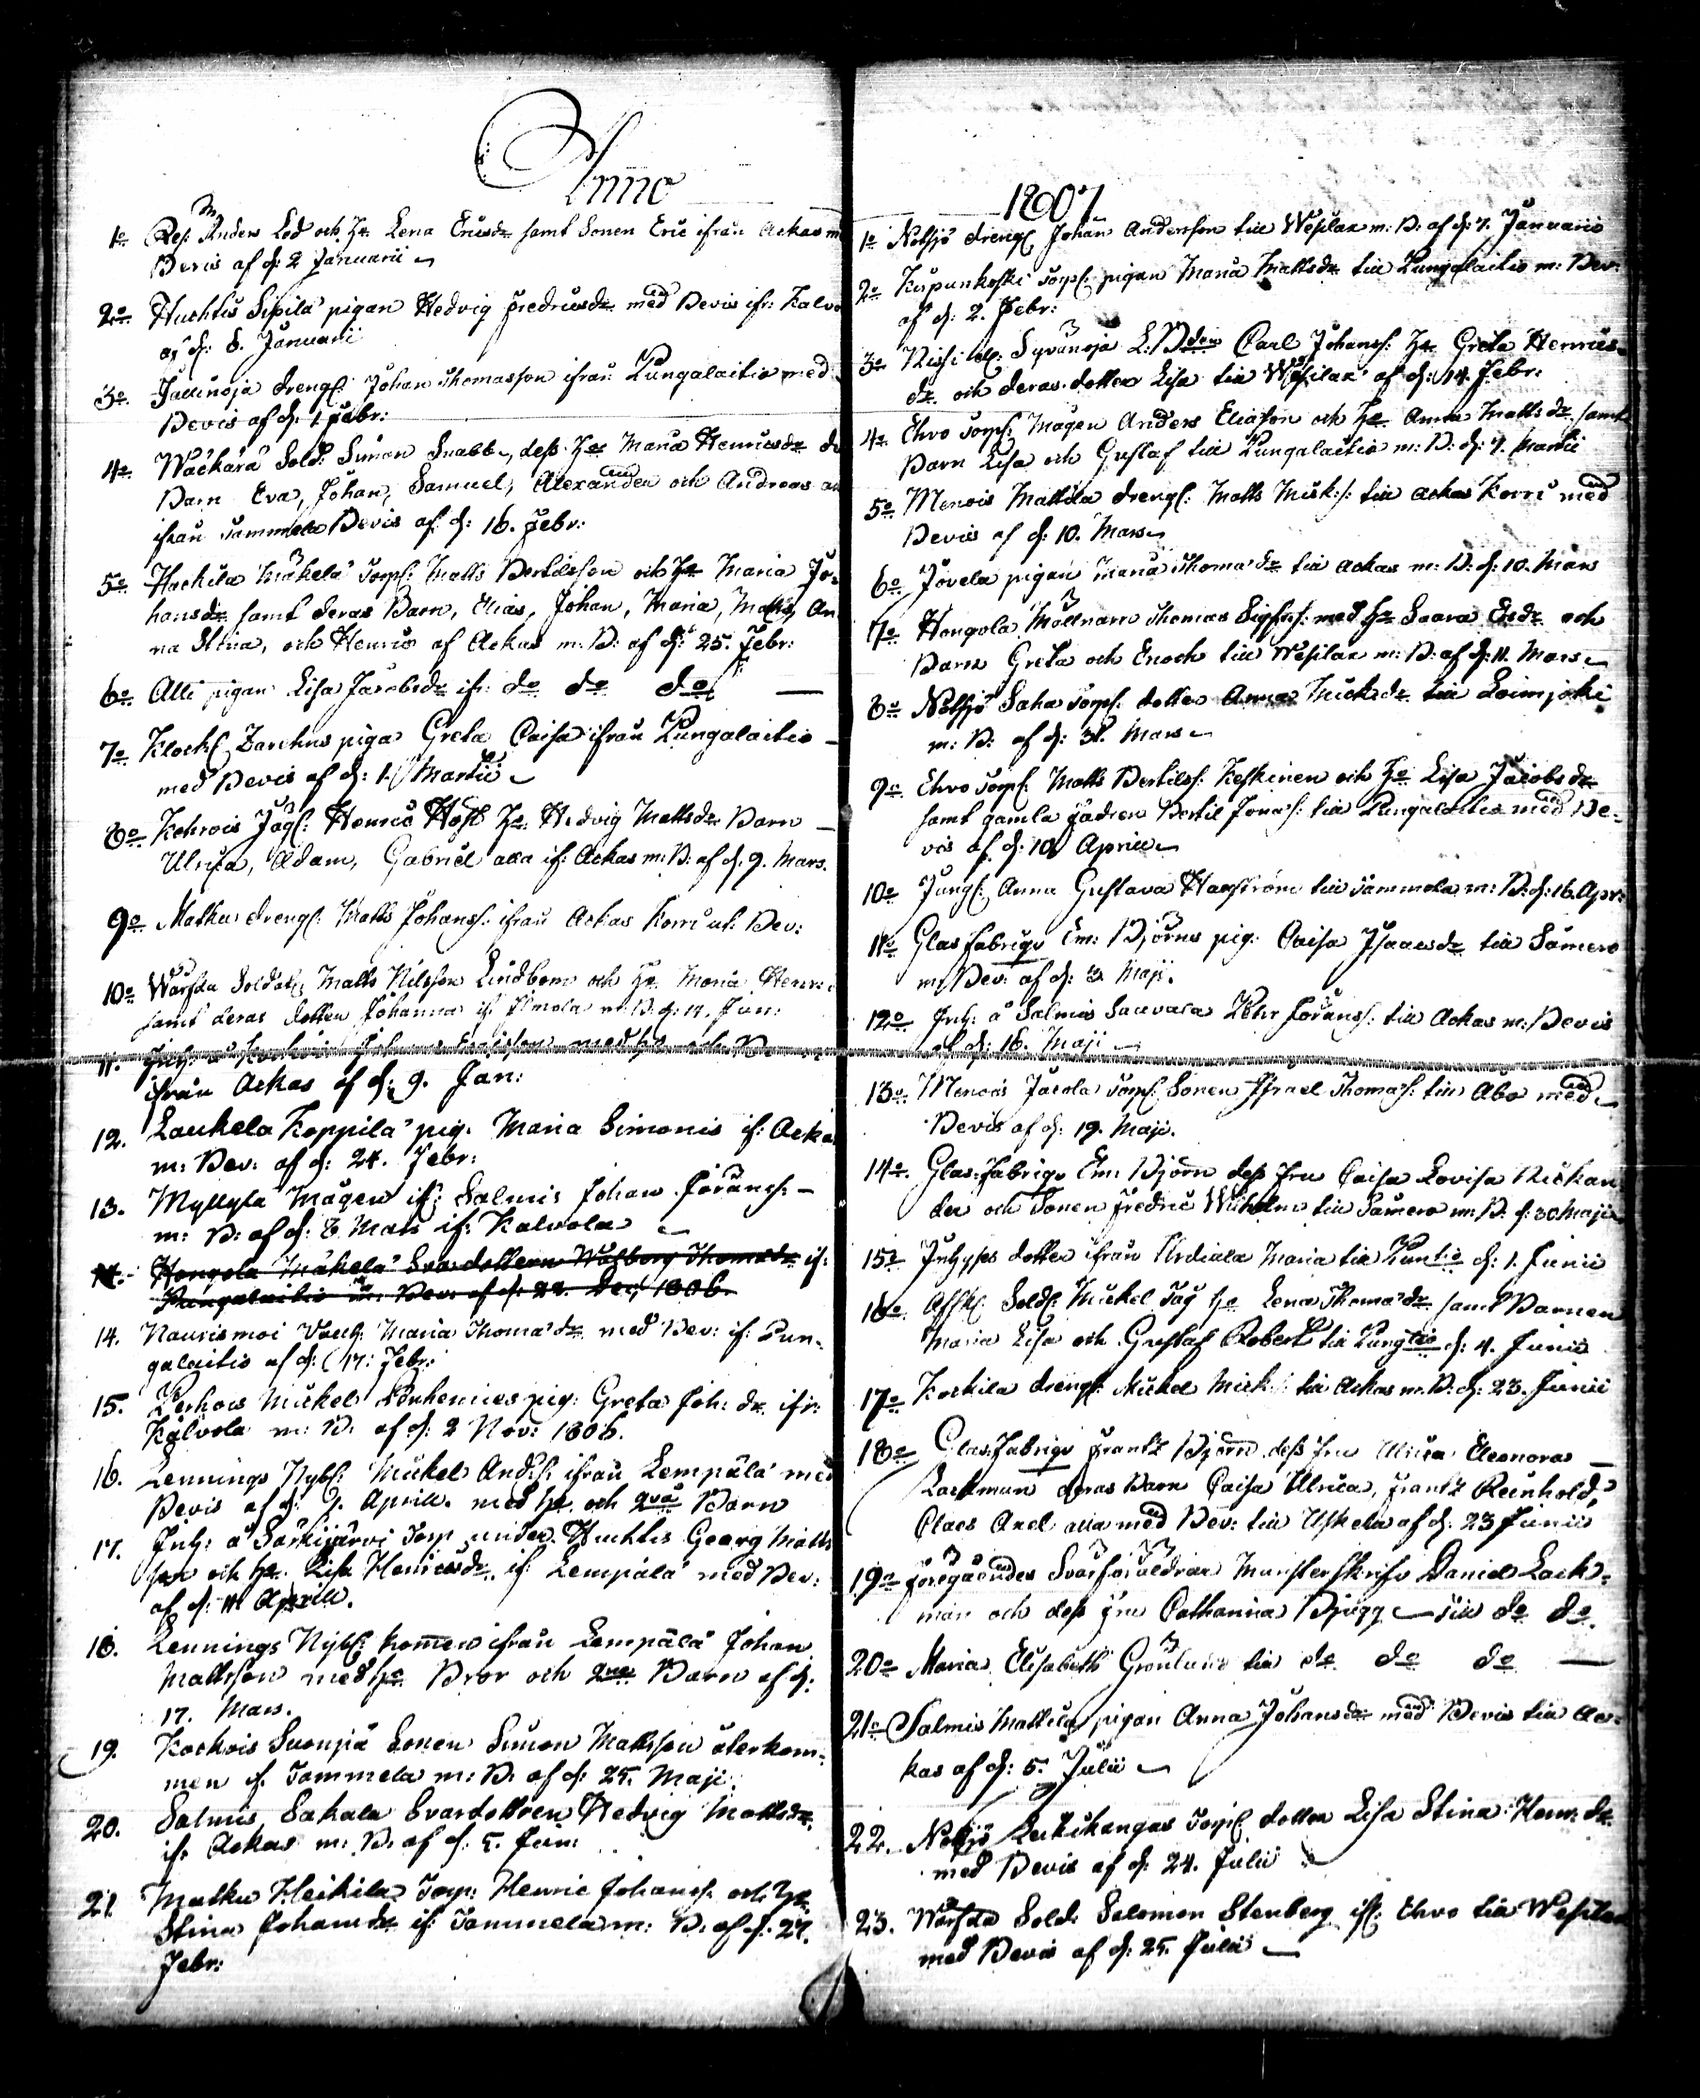 Anno
1o Anders Lod och H: Lena Ericsdr samt Sonen Eric ifrån Ackas m
Bevis af d: 2 Januarii
2o Huchtis Sipilä pigan Hedvig Fredricsdr med Bevis ifr: Kalvo
af d: 8. Januarii
3o Jällinoja dreng: Johan Thomasson ifrån Pungalaitio med
Bevis af d: 1 Febr:
4o Wäckärä Sold: Simon Snabb, dess H: Maria Henricsdr
Barn Eva, Johan, Samuel, Alexander och Andreas
ifrån Tammela Bevis af d: 16. Febr:
5o Hackila Mäkelä Torp: Matts Bertilsson och H: Maria Jo-
hansdr samt deras Barn, Elias, Johan, Maria, Matts, An
na Stina, och Henric af Ackas m: B: af d: 25. Febr:
6o Alli pigan Lisa Jacobsdr if: do do do
7o Klock: Zarchus piga Greta Caisa ifrån Pungalaitio
med Bevis af d: 1. Martii
8o Kehrois Jäg: Henric H: Hedvig Mattsdr Barn
Ulrica, Adam, Gabriel alla if: Ackas m: B: af d. 9. Mars.
9o Matku dreng: Matts Johanss: ifrån Ackas Korri ut: Bev:
10o Soldat: Matts Nilsson Lindbom och H: Maria Henri
samt deras dotter Johanna if: m: B. d:
11.
ifrån Ackas af d: 9. Jan:
12. Laukela Koppila pig. Maria Simonis if: Acka
m: Bev: af d: 24. Febr:
13. Myllylä Mågen if: Salmis Johan Göranss:
m: B: af d: 8 Mars if: Kalvola
14. Hongola Mäkelä Walborg Thomadr if:
Pungalaitio m: Bev: af d: 22. Dec: 1806.
14. Naurismoi Maria Thomadr med Bev: if: Pun-
galaitio af d: 17: Febr:
15. Mickel pig: Greta Joh: dr ifr:
Kalvola m: B. af d: 2 Nov: 1806.
16. Lennings Nyb: Mickel And:s: ifrån Lempälä med
Bevis af d: 9. Aprill. med H: och 2vå Barn
17. Inh: å Särkijärvi Torp under Huchtis Georg Matts
son och H: Lisa Henricsdr if: Lempälä med Bev:
af d: 11 Aprill.
18. Lennings Nyb: kommen ifrån Lempälä Johan
Mattsson med H: Bror och 2ne Barn af d:
17. Mars.
19. Kockois Suonpä Sonen Simon Mattsson återkom-
men if. Tammela m: B. af d: 25. Maji.
20. Salmis Sakala Svardottren Hedvig Mattsdr
if: Ackas m: B. af d. 5. Jun:
21 Matku Heikilä Torp: Henric Johanss: och H:
Stina Johansdr if: Tammela m: B. af d. 27.
Febr:
1807
1o Notsjö dreng: Johan Andersson till Wesilax m: B. af d: 7. Januarii
2o Kupunkoski Torp: pigan Maria Mattsdr till Pungalaitio m: Bev:
af d: 2. Febr:
3o Syvänoja Carl Johanss: H: Greta Henrics-
dr och deras dotter Lisa till Wesilax af d: 14. Febr:
4o Ehro Torp: Mågen Anders Eliasson och H: Anna Mattsdr samt
Barn Lisa och Gustaf till Pungalaitio m: B: d: 7. Martii
5o Menois Mattila dreng: Matts Mick:s: till Ackas Korri med
Bevis af d: 10. Mars
6o Jovela pigan Maria Thomadr till Ackas m: B: d: 10. Mars
7o Hongola Möllnarn Thomas Sigfrs: med H: Saara Esdr och
Barn Greta och Enoch till Wesilax m: B: af d: 11. Mars
8o Notsjö Saha Torp: dotter Anna Micksdr till Loimjoki
m: B: af d: 31. Mars
9o Ehro Torp: Matts Bertilss: Keskinen och H: Lisa Jacobsdr
samt gamla fadren Bertil Jonas: till Pungalaitio med Be-
vis af d: 10 Aprill
10o Jung: Anna Gustava Hagström till Tammela m: B: d: 16. Apr:
11o Glas fabriqs Em: Björns pig: Caisa Isaacsdr till Sämero
m: Bev: af d: 3. Maji.
12o Inh: å Salmis Saavara Petr Görans: till Ackas m: Bevis
af d: 16. Maji
13o Menois Jacola Torp: Sonen Israel Thomas: till Åbo med
Bevis af d: 19. Maji.
14o Glas-Fabriqs Em: Björn dess Fru Caisa Lovisa Nickan
der och Sonen Fredric Wilhelm till Sämero m: B. d: 30 Maji
15o Inhyses dotter ifrån Urdiala Maria till d: 1. Junii
16o Sold: Mickel Tåg H: Lena Thomadr samt Barnen
Maria Lisa och Gustaf Robert till Pungtio d: 4. Junii
17o Kockila dreng: Mickel Mick:s: till Ackas m: B: d: 23. Junii
18o Glas-Fabriqs Frantz Björn dess Fru Ulrica Eleonora
Lackman deras Barn Caisa Ulrica, Frantz Reinhold,
Claes Axel alla med Bev: till Uskela af d. 23 Junii
19o föregåendes Svärföräldrar Munsterskrifv Daniel Lack-
man och dess Fru Catharina Björgg till do do.
20o Maria Elisabeth Grönlund till do do do
21o Salmis Mattila pigan Anna Johansdr med Bevis till Ac-
kas af d: 5. Julii
22. Notsjö Leckikangas Torp: dotter Lisa Stina Henr: dr
med Bevis af d: 24. Julii
23. Sold: Salomon Stenberg if: Ehro till Wesilax
med Bevis af d: 25. Julii